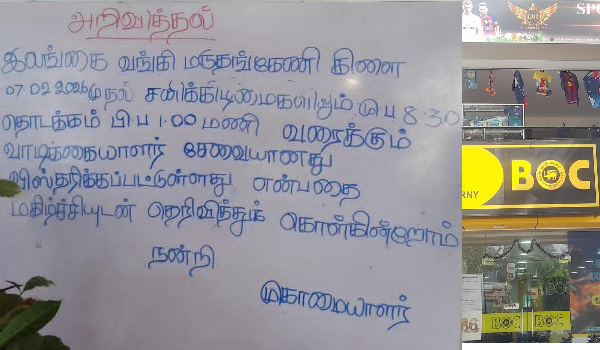 அறிவித்தல்
இலங்கை வங்கி மருதங்கேணி கிளை
07.02.2026முதல் சனிக்கிழமைகளிலும் மு.ப 8.30
தொடக்கம் பி.ப 1.00 மணி வரைக்கும்
வாடிக்கையாளர் சேவையானது
விஸ்தரிக்கப்பட்டுள்ளது என்பதை
மகிழ்ச்சியுடன் தெரிவித்துக் கொள்கின்றோம்
நன்றி
முகாமையாளர்
SPO
DR
RNY
BOC
BOC
BOC